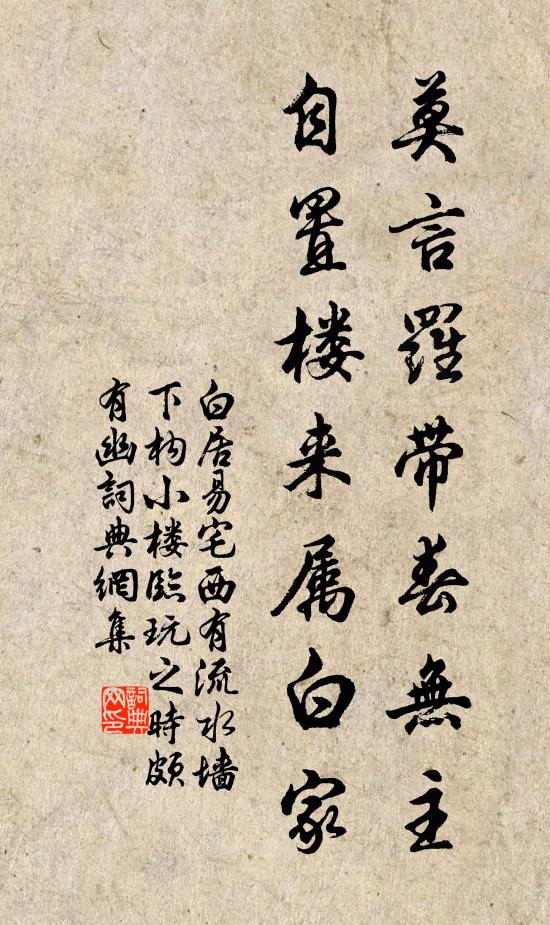 莫言羅帶春無主
自置楼来属白家
白居易宅西有流水墙
下构小楼臨玩之時颇
有幽詞典網集
詞典
网印